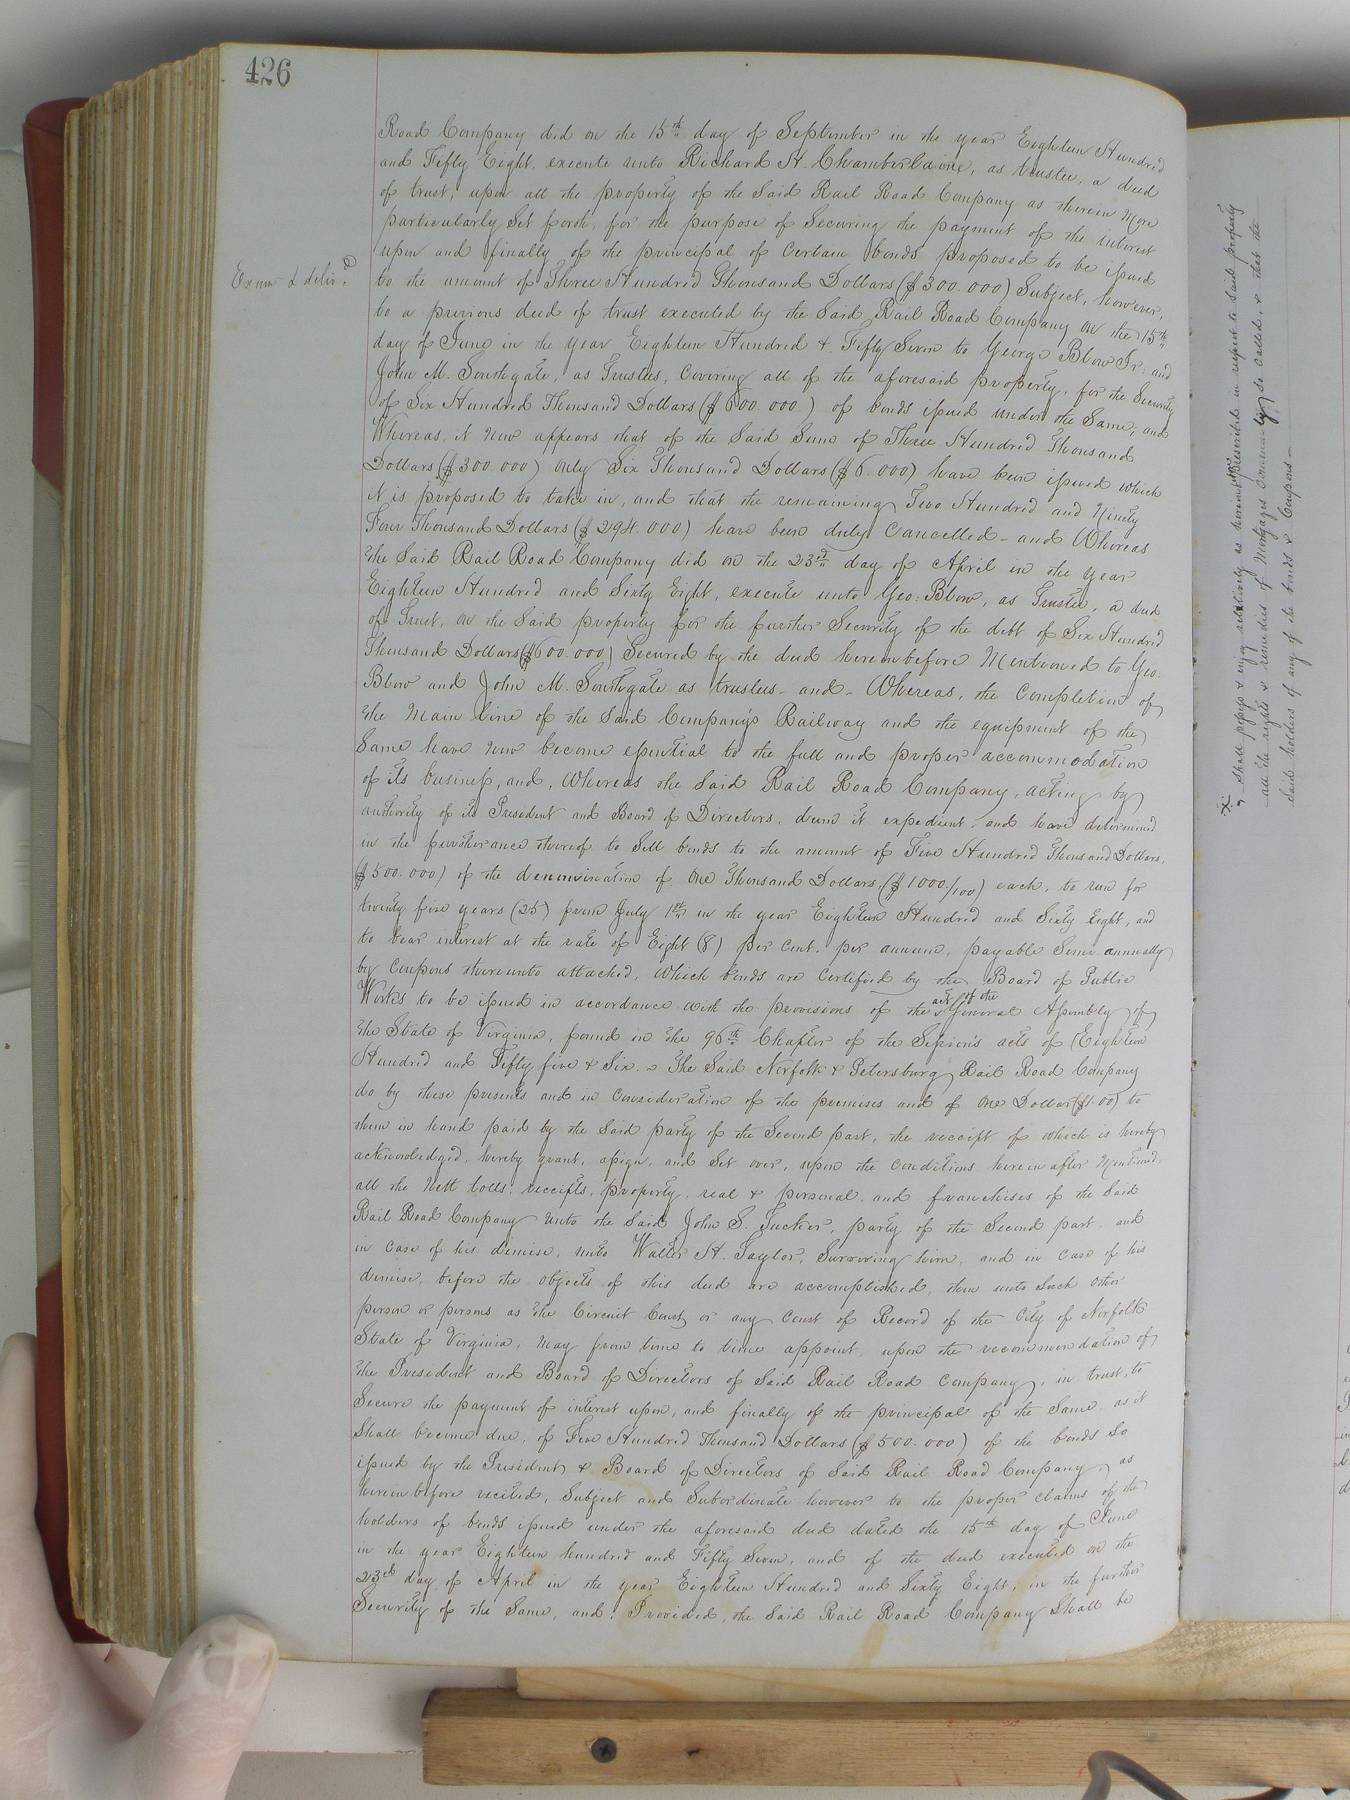 426
Road Company did on the 15th day of September in the year Eighteen Hundred
and Fifty Eight. execute unto Richard H. Chamberlaine, as trustee, a deed
of trust, upon all the property of the Said Rail Road Company as therein More
particularly Set forth, for the purpose of Securing the payment of the interest
upon and finally of the principal of Certain bonds proposed to be issued
Exam & deliv.d
to the amount of Three Hundred Thousand Dollars ($300.000) Subject, however,
to a previous deed of trust executed by the Said Rail Road Company on the 15th
day of June in the year Eighteen Hundred & Fifty Seven to George Blow Jr. and
John M. Southgate, as Trustees, Covering all of the aforesaid property, for the Security
of Six Hundred Thousand Dollars ($600.000.) of bonds issued under the Same, and
Whereas, it now appears that of the Said Sum of Three Hundred Thousand
Dollars ($300.000) only Six Thousand Dollars ($6.000) have been issued which
it is proposed to take in, and that the remaining Two Hundred and Ninety
Four Thousand Dollars ($294.000) have been duly Cancelled - and Whereas
the Said Rail Road Company did on the 23rd day of April in the year
Eighteen Hundred and Sixty Eight, execute unto Geo: Blow, as Trustee, a deed
of Trust, on the Said property for the further Security of the debt of Six Hundred
Thousand Dollars ($600.000) Secured by the deed hereinbefore Mentioned to Geo.
Blow and John M. Southgate as trustees - and - Whereas, the Completion of
the Main line of the Said Company's Railway and the equipment of the
Same have now become essential to the full and proper accommodation
of its business, and, Whereas the Said Rail Road Company, acting by
authority of its President and Board of Directors, deem it expedient, and have determined
in the furtherance thereof to Sell bonds to the amount of Five Hundred Thousand Dollars,
($500.000) of the denomination of One Thousand Dollars, ($1000./100) each, to run for
twenty five years (25) from July 1st in the year Eighteen Hundred and Sixty Eight, and
to bear interest at the rate of Eight (8) per Cent. per annum, payable Semi annually
by Coupons thereunto attached, Which bonds are Certified by the Board of Public
Works to be issued in accordance with the provisions of the act of the General Assembly of
the State of Virginia, found in the 96th Chapter of the Session's acts of Eighteen
Hundred and Fifty five & Six. The Said Norfolk & Petersburg Rail Road Company
do by these presents and in Consideration of the premises and of One Dollar ($1.00) to
them in hand paid by the Said party of the Second part, the receipt of which is hereby
acknowledged, hereby grant, assign, and Set over, upon the Conditions herein after Mentioned,
all the Nett tolls, receipts, property, real & personal, and franchises of the Said
Rail Road Company unto the Said John S. Tucker, party of the Second part, and
in Case of his demise, unto Walter H. Taylor, Surviving him, and in Case of his
demise, before the objects of this deed are accomplished, then unto Such other
person or persons as the Circuit Court or any Court of Record of the City of Norfolk
State of Virginia, May from time to time appoint, upon the recommendation of
the President and Board of Directors of Said Rail Road Company, in trust, to
Secure the payment of interest upon, and finally of the principal of the Same, as it
Shall become due, of Five Hundred Thousand Dollars ($500.000) of the bonds So
issued by the President & Board of Directors of Said Rail Road Company, as
hereinbefore recited, Subject and Subordinate however to the proper claims of the
holders of bonds issued under the aforesaid deed dated the 15th day of June
in the year Eighteen hundred and Fifty Seven, and of the deed executed on the
23rd day of April in the year Eighteen Hundred and Sixty Eight, in the further
Security of the Same, and, Provided, the Said Rail Road Company Shall be
Shall possess & enjoy relatively as herein prescribed in respect to said property
all the rights & remedies of Mortgages Commonly so called, & that the
said holders of any of the bonds & Coupons -